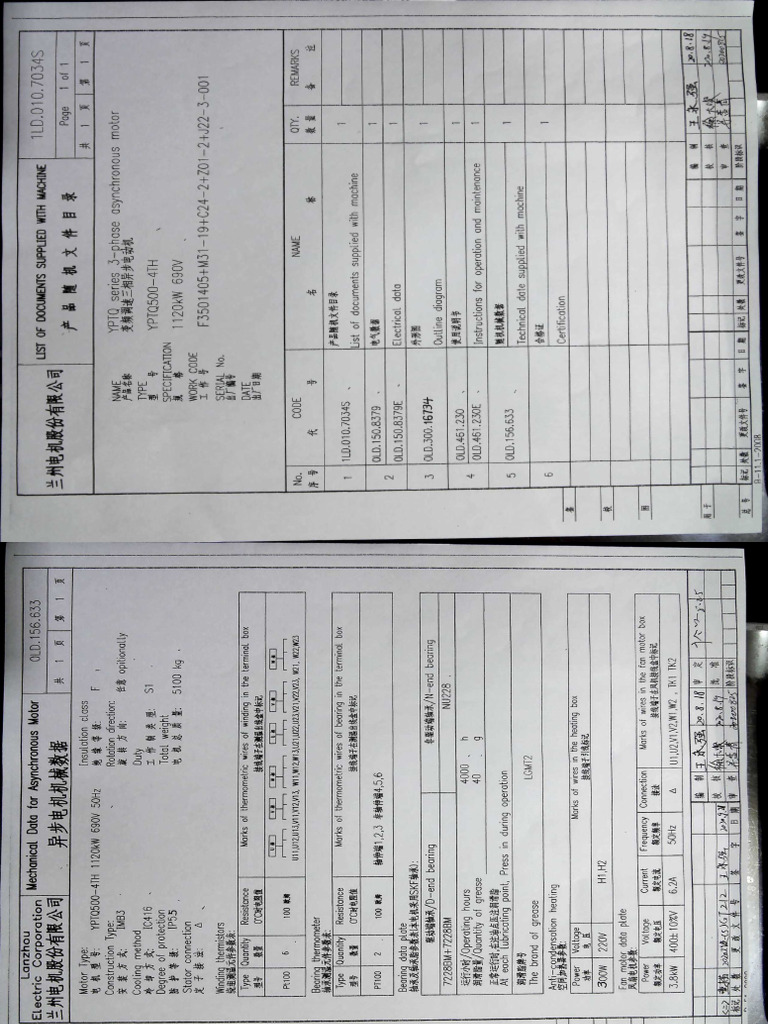 兰州电机股份有限公司
LIST OF DOCUMENTS SUPPLIED WITH MACHINE
产品随机文件目录
1LD.010.7034S
Page 1 of 1
共 1 页 第 1 页
NAME YPTQ series 3-phase asynchronous motor
产品名称 变频调速三相异步电动机
TYPE
型 号 YPTQ500-4TH
SPECIFICATION
规 格 1120kW 690V
WORK CODE
工 作 号 F3501405+M31-19+C24-2+Z01-2+J22-3-001
SERIAL No.
出厂编号
DATE
出厂日期
No. CODE NAME QTY. REMARKS
序号 代 号 名 称 数量 备 注
1 1LD.010.7034S 产品随机文件目录 1
List of documents supplied with machine
2 0LD.150.8379 电气数据 1
0LD.150.8379E Electrical data 1
3 0LD.300.16734 外形图 1
Outline diagram
4 0LD.461.230 使用说明书 1
0LD.461.230E Instructions for operation and maintenance 1
5 0LD.156.633 随机机械数据 1
Technical date supplied with machine
6 合格证 1
Certification
编 制 王永强 20.8.18
校 核
审 查
标记 处数 更改文件号 签 字 日 期 标记 处数 更改文件号 签 字 日 期 阶段标识
8-11.1-2008
Lanzhou
Electric Corporation
兰州电机股份有限公司
Mechanical Data for Asynchronous Motor
异步电机机械数据
0LD.156.633
共 1 页 第 1 页
Motor Type: YPTQ500-4TH 1120kW 690V 50Hz Insulation class
电 机 型 号: 绝 缘 等 级: F
Construction Type: Rotation direction:
安 装 方 式: IMB3 旋 转 方 向: 任意 opitionally
Cooling method Duty
冷 却 方 式: IC416 工 作 制 类 型: S1
Degree of protection Total weight
防 护 等 级: IP55 电 机 总 质 量: 5100 kg
Stator connection
定 子 接 法: Δ
Winding thermistors
绕组测温元件参数表:
Type Quantity Resistance Marks of thermometric wires of winding in the terminal box
型号 数量 0℃时电阻值 接线端子在测温出线盒中标记
Pt100 6 100 欧姆
Bearing thermometer
轴承测温元件参数表:
Type Quantity Resistance Marks of thermometric wires of bearing in the terminal box
型号 数量 0℃时电阻值 接线端子在测温出线盒中标记
PT100 2 100 欧姆 轴伸端1,2,3 非轴伸端4,5,6
Bearing data plate
轴承及轴承润滑参数表(本电机采用SKF轴承):
驱动端轴承/D-end bearing 非驱动端轴承/N-end bearing
7228BM+7228BM NU228
运行小时/Operating hours 4000 h
润滑脂量/Quantity of grease 40 g
At each lubricating point, Press in during operation
润滑脂牌号
The brand of grease LGMT2
Anti-condensation heating
Power Voltage Marks of wires in the heating box
功率 电 压 接线端子引线标记
300W 220V H1,H2
Fan motor data plate
风扇电机参数
Power Voltage Current Frequency Connection Marks of wires in the fan motor box
额定功率 额定电压 额定电流 额定频率 接法 接线端子在风机接线盒中标记
3.8kW 400±10%V 6.2A 50Hz Δ U1,U2,V1,V2,W1,W2 , TK1 TK2
编 制 王永强 20.8.18 审 定
校 核 批 准
审 查 阶段标识
标记 处数 更改文件号 签 字 日 期